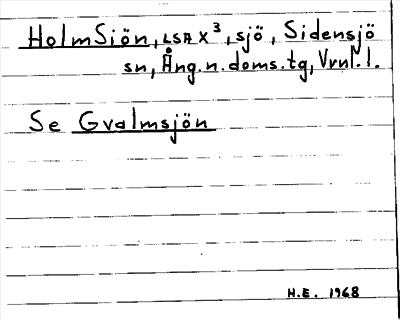 HolmSiön, LSA X³, sjö, Sidensjö
sn, Ång. n. doms. tg, Vrnl. l.
Se Gvalmsjön
H.E. 1968